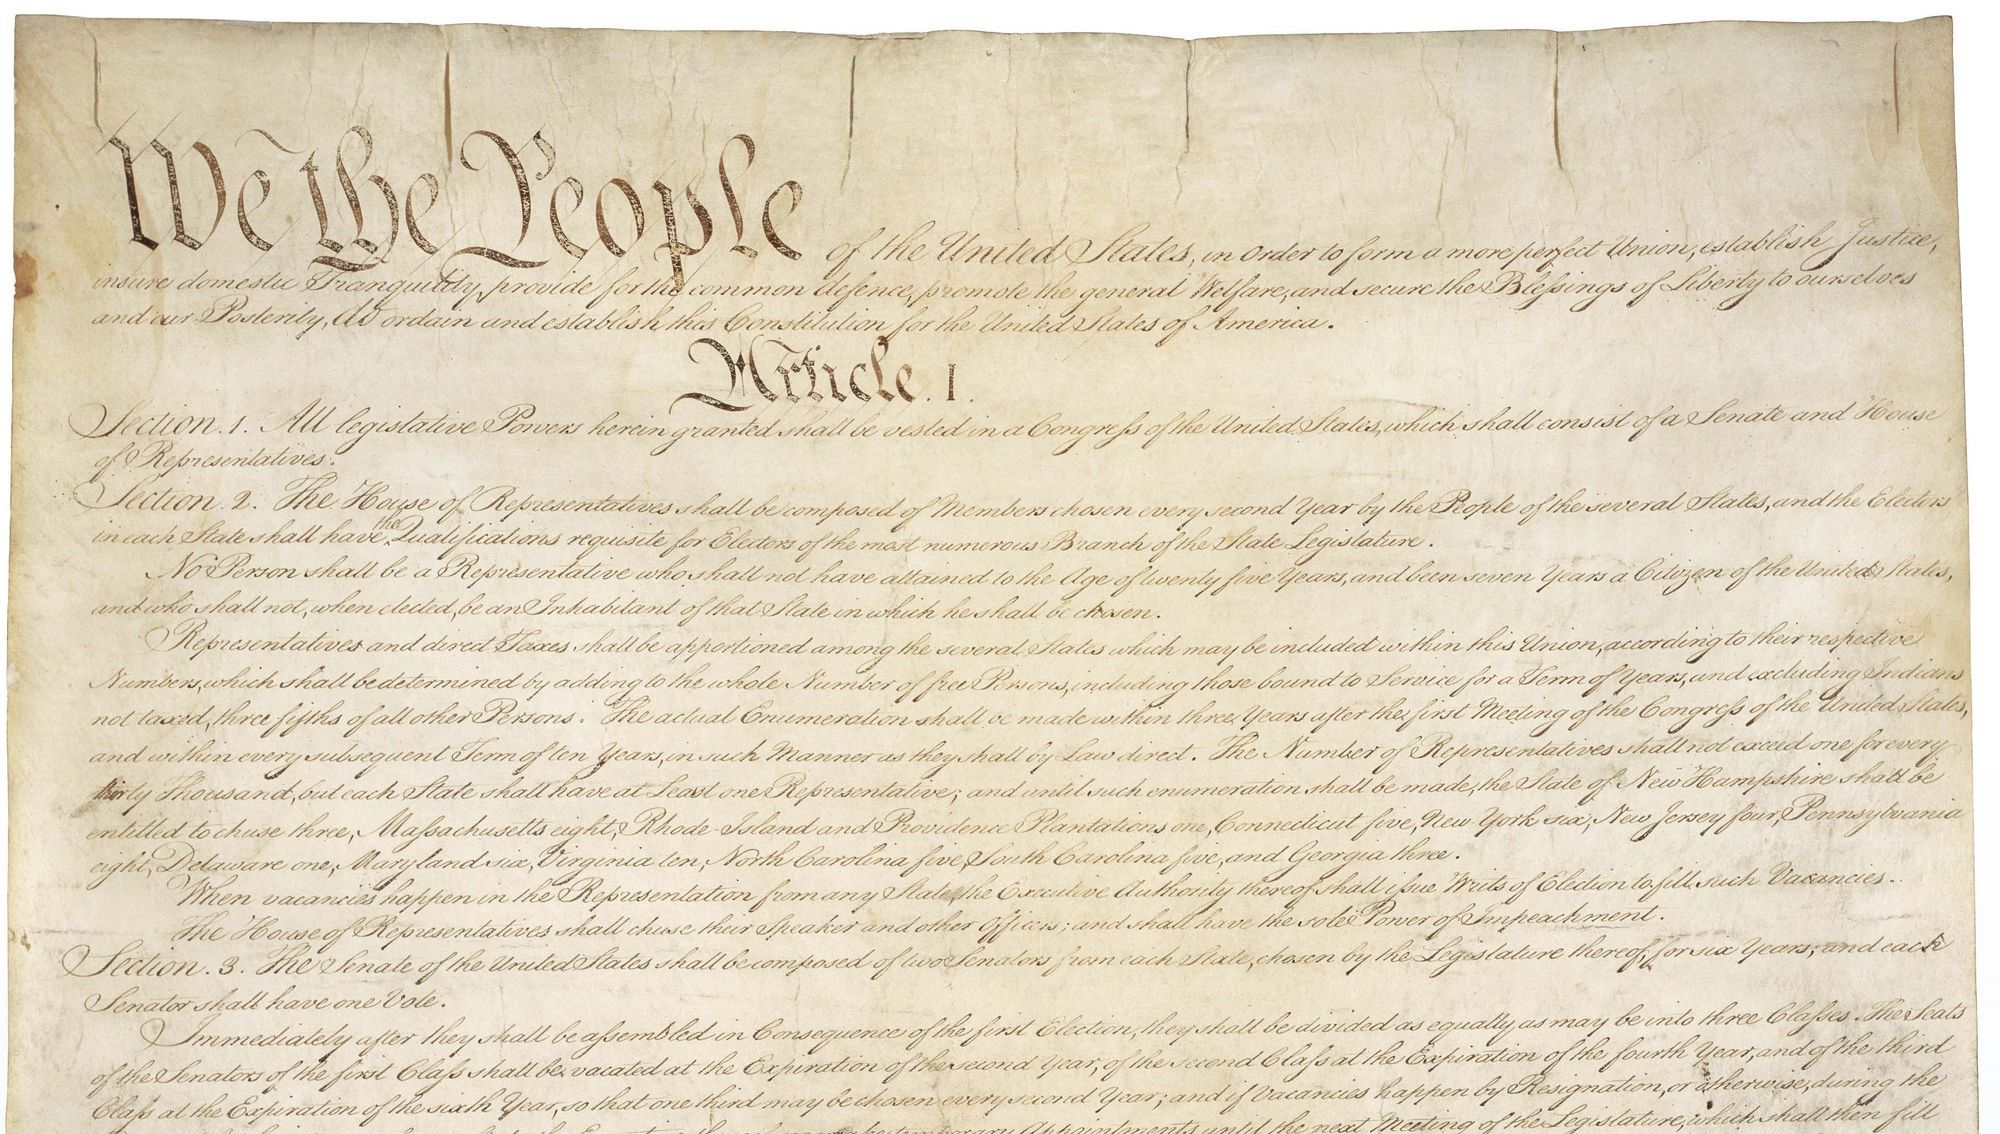 We the People of the United States, in Order to form a more perfect Union, establish Justice,
insure domestic Tranquility, provide for the common defence, promote the general Welfare, and secure the Blessings of Liberty to ourselves
and our Posterity, do ordain and establish this Constitution for the United States of America.
Article. I.
Section. 1. All legislative Powers herein granted shall be vested in a Congress of the United States, which shall consist of a Senate and House
of Representatives.
Section. 2. The House of Representatives shall be composed of Members chosen every second Year by the People of the several States, and the Electors
in each State shall have the Qualifications requisite for Electors of the most numerous Branch of the State Legislature.
No Person shall be a Representative who shall not have attained to the Age of twenty five Years, and been seven Years a Citizen of the United States,
and who shall not, when elected, be an Inhabitant of that State in which he shall be chosen.
Representatives and direct Taxes shall be apportioned among the several States which may be included within this Union, according to their respective
Numbers, which shall be determined by adding to the whole Number of free Persons, including those bound to Service for a Term of Years, and excluding Indians
not taxed, three fifths of all other Persons. The actual Enumeration shall be made within three Years after the first Meeting of the Congress of the United States,
and within every subsequent Term of ten Years, in such Manner as they shall by Law direct. The Number of Representatives shall not exceed one for every
thirty Thousand, but each State shall have at Least one Representative; and until such enumeration shall be made, the State of New Hampshire shall be
entitled to chuse three, Massachusetts eight, Rhode-Island and Providence Plantations one, Connecticut five, New-York six, New Jersey four, Pennsylvania
eight, Delaware one, Maryland six, Virginia ten, North Carolina five, South Carolina five, and Georgia three.
When vacancies happen in the Representation from any State, the Executive Authority thereof shall issue Writs of Election to fill such Vacancies.
The House of Representatives shall chuse their Speaker and other Officers; and shall have the sole Power of Impeachment.
Section. 3. The Senate of the United States shall be composed of two Senators from each State, chosen by the Legislature thereof, for six Years; and each
Senator shall have one Vote.
Immediately after they shall be assembled in Consequence of the first Election, they shall be divided as equally as may be into three Classes. The Seats
of the Senators of the first Class shall be vacated at the Expiration of the second Year, of the second Class at the Expiration of the fourth Year, and of the third
Class at the Expiration of the sixth Year, so that one third may be chosen every second Year; and if Vacancies happen by Resignation, or otherwise, during the
temporary Appointments until the next Meeting of the Legislature, which shall then fill